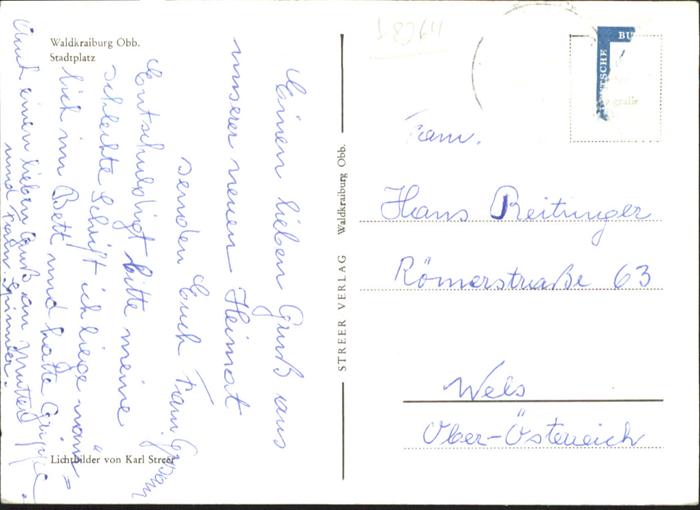 Waldkraiburg Obb.
Stadtplatz
Einen lieben Gruß aus
unserer neuen Heimat
senden Euch Fam.
Entschuldigt bitte meine
schlechte Schrift ich liege näm=
lich im Bett und hatte Grippe.
Auch einen lieben Gruß an Mutter
und Fam.
Lichtbilder von Karl Streer
STREER VERLAG Waldkraiburg Obb.
Fam.
Hans Reitinger
Römerstraße 63
Wels
Ober-Österreich
BU